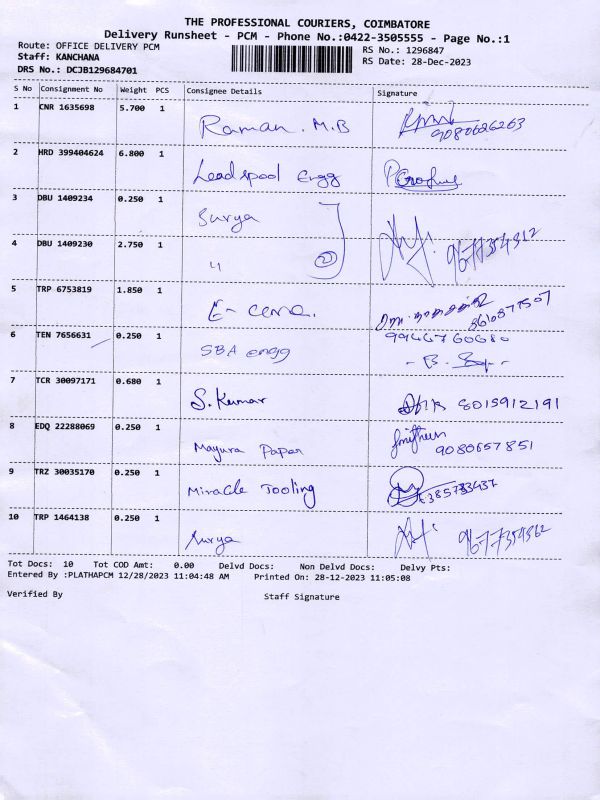 THE PROFESSIONAL COURIERS, COIMBATORE
Delivery Runsheet - PCM - Phone No.:0422-3505555 - Page No.:1
Route: OFFICE DELIVERY PCM RS No.: 1296847
Staff: KANCHANA RS Date: 28-Dec-2023
DRS No.: DCJB129684701
S No Consignment No Weight PCS Consignee Details Signature
1 CNR 1635698 5.700 1 Raman. M.B 9080626263
2 HRD 399404624 6.800 1 Leadspool Engg
3 DBU 1409234 0.250 1 Surya
4 DBU 1409230 2.750 1 " 2 9677354312
5 TRP 6753819 1.850 1 E- cema. 8610877507
6 TEN 7656631 0.250 1 SBA engg 9944760680
7 TCR 30097171 0.680 1 S. Kumar 8015912191
8 EDQ 22288069 0.250 1 Mayura Paper 9080657851
9 TRZ 30035170 0.250 1 Miracle Tooling
10 TRP 1464138 0.250 1 Surya
Tot Docs: 10 Tot COD Amt: 0.00 Delvd Docs: Non Delvd Docs: Delvy Pts:
Entered By :PLATHAPCM 12/28/2023 11:04:48 AM Printed On: 28-12-2023 11:05:08
Verified By Staff Signature